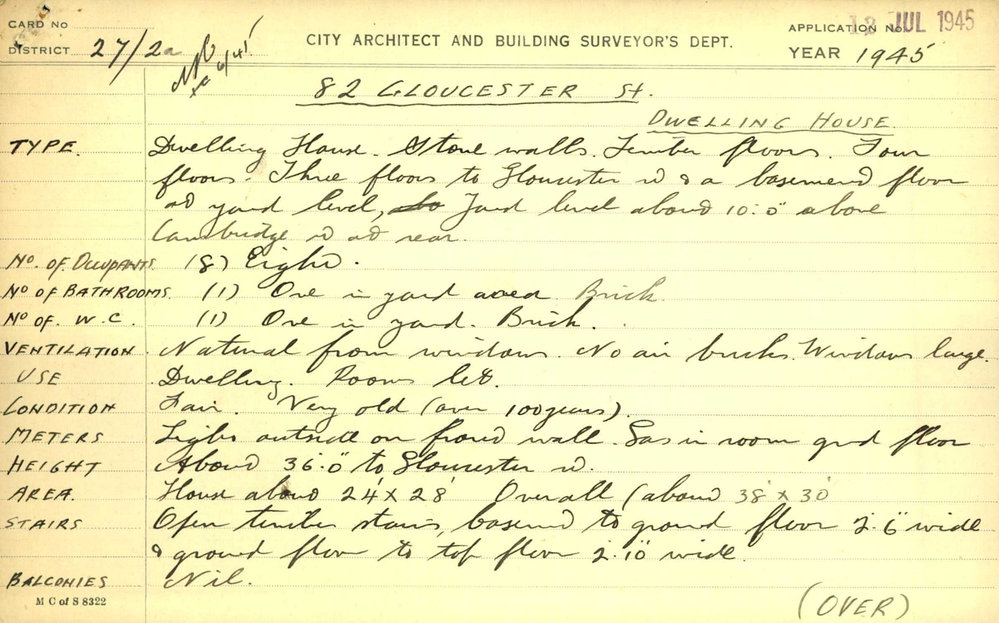 CARD No
DISTRICT 27/2a
CITY ARCHITECT AND BUILDING SURVEYOR'S DEPT.
APPLICATION No. 18 JUL 1945
YEAR 1945
82 GLOUCESTER St.
DWELLING HOUSE
TYPE. Dwelling House. Stone walls. Timber floors. Four
floors. Three floors to Gloucester St & a basement floor
at yard level, Yard level about 10'.0" above
Cambridge St at rear.
No. OF OCCUPANTS. (8) Eight.
No OF BATHROOMS. (1) One in yard Brick.
No OF. W.C. (1) One in yard. Brick.
VENTILATION. Natural from windows. No air bricks. Windows large.
USE Dwelling. Rooms let.
CONDITION Fair. Very old (over 100 years).
METERS Light outside on front wall. Gas in room grd floor
HEIGHT About 36'.0" to Gloucester St.
AREA. House about 24' x 28' Overall (about 38' x 30'
STAIRS Open timber stairs, basement to ground floor 2'.6" wide
& ground floor to top floor 2'.10" wide.
BALCONIES Nil.
M C of S 8322
(OVER)